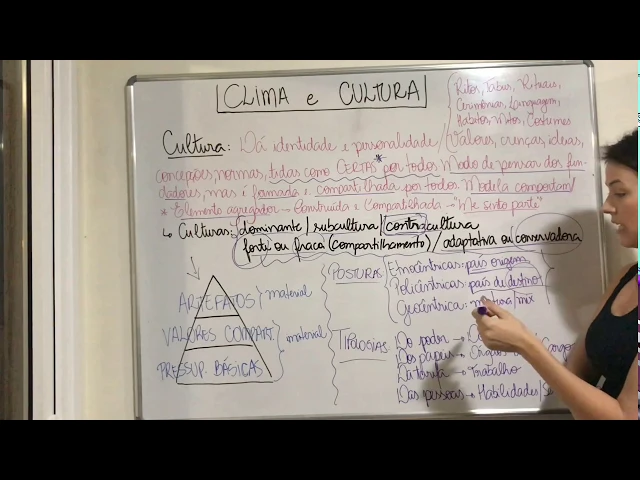 CLIMA e CULTURA
Ritos, Tabus, Rituais,
Cerimônias, Linguagem,
Hábitos, Mitos, Costumes
Cultura: Dá identidade e personalidade / Valores, crenças, ideias,
concepções, normas, tidas como CERTAS* por todos. Modo de pensar dos fun-
dadores, mas é formada e compartilhada por todos. Modela comportam/
* Elemento agregador - Construída e Compartilhada → "Me sinto parte"
↳ Culturas: dominante / subcultura / contracultura
forte ou fraca (compartilhamento) / adaptativa ou conservadora
ARTEFATOS } material
VALORES COMPART.
PRESSUP. BÁSICAS } imaterial
POSTURAS
Etnocêntricas: país origem
Policêntricas: país de destino
Geocêntrica: mistura/mix
TIPOLOGIAS
Do poder →
Dos papéis →
Da tarefa → Trabalho
Das pessoas → Habilidades/